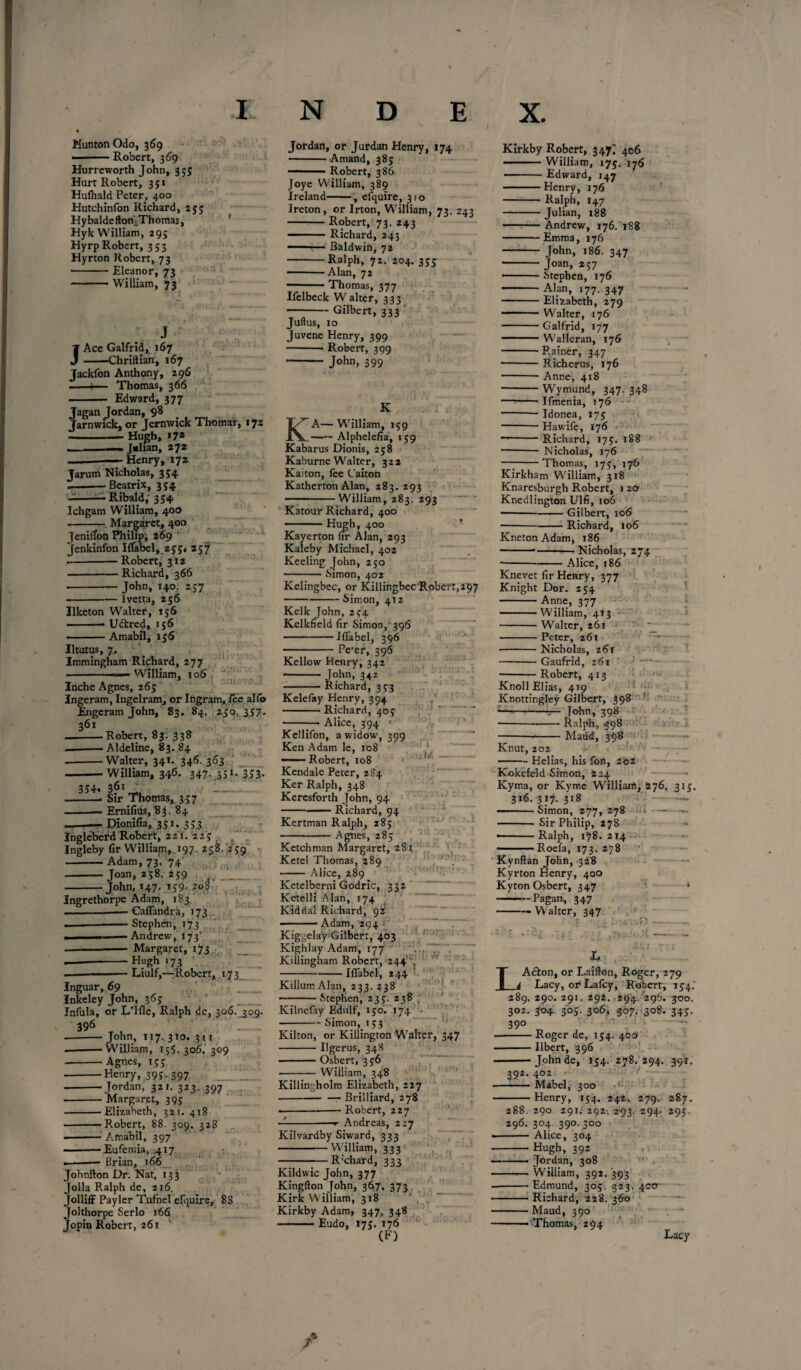 I N D E X.
Hunton Odo, 369
—— Robert, 369
Hurreworth John, 355
Hurt Robert, 351
Huſhald Peter, 400
Hutchinſon Richard, 255
Hybaldeſton Thomas,
Hyk William, 295
Hyrp Robert, 353
Hyrton Robert, 73
—— Eleanor, 73
—— William, 73
J
JAce Galfrid, 167
——Chriſtian, 167
Jackſon Anthony, 296
—— Thomas, 366
—— Edward, 377
Jagan Jordan, 98
Jarnwick, or Jernwick Thomas, 172
—— Hugh, 172
—— Julian, 272
—— Henry, 172
Jarum Nicholas, 354
—— Beatrix, 354
—— Ribald, 354
Ichgam William, 400
—— Margaret, 400
Jeniſſon Philip, 269
Jenkinſon Iſſabel, 255. 257
—— Robert, 312
—— Richard, 366
—— John, 140. 257
—— Ivetta, 256
Ilketon Walter, 156
—— Uctred, 156
—— Amabil, 156
Iltutus, 7.
Immingham Richard, 277
—— William, 106
Inche Agnes, 265
Ingeram, Ingelram, or Ingram, ſee alſo
Engeram John, 83. 84. 250. 357.
361
—— Robert, 83. 338
—— Aldeline, 83. 84
—— Walter, 341. 346. 363
—— William, 346. 347. 351. 353.
354. 361
—— Sir Thomas, 357
—— Ernifius, 83. 84
—— Dioniſia, 351. 353
Ingleberd Robert, 221. 225
Ingleby ſir William, 197. 258. 259
—— Adam, 73. 74
—— Joan, 258. 259
—— John, 147. 159. 208
Ingrethorpe Adam, 183
—— Caſſandra, 173
—— Stephen, 173
—— Andrew, 173
—— Margaret, 173
—— Hugh 173
—— Liulf,—Robert, 173
Inguar, 69
Inkeley John, 365
Inſula, or L'Iſle, Ralph de, 306. 309.
396
—— John, 117. 310. 311
—— William, 155. 306. 309
—— Agnes, 155
—— Henry, 395. 397
—— Jordan, 321. 323. 397
—— Margaret, 395
—— Elizabeth, 321. 418
—— Robert, 88. 309. 328
—— Amabil, 397
—— Eufemia, 417
—— Brian, 166
Johnſton Dr. Nat, 133
Jolla Ralph de, 216
Jolliff Payler Tufnel eſquire, 88
Jolthorpe Serlo 166
Jopin Robert, 261
Jordan, or Jurdan Henry, 174
—— Amand, 385
—— Robert, 386
Joye William, 389
Ireland——, eſquire, 310
Ireton, or Irton, William, 73. 243
—— Robert, 73. 243
—— Richard, 243
—— Baldwin, 72
—— Ralph, 72. 204. 355
—— Alan, 72
—— Thomas, 377
Iſelbeck Walter, 333
—— Gilbert, 333
Juſtus, 10
Juvene Henry, 399
—— Robert, 399
—— John, 399
K
KA— William, 159
—— Alpheleſia, 159
Kabarus Dionis, 258
Kaburne Walter, 322
Kaiton, ſee Caiton
Katherton Alan, 283. 293
—— William, 283. 293
Katour Richard, 400
—— Hugh, 400
Kayerton ſir Alan, 293
Kaleby Michael, 402
Keeling John, 250
—— Simon, 402
Kelingbec, or Killingbec Robert, 297
—— Simon, 412
Kelk John, 254
Kelkfield ſir Simon, 396
—— Iſſabel, 396
—— Peter, 396
Kellow Henry, 342
—— John, 342
—— Richard, 353
Keleſay Henry, 394
—— Richard, 405
—— Alice, 394
Kelliſon, a widow, 399
Ken Adam le, 108
—— Robert, 108
Kendale Peter, 284
Ker Ralph, 348
Keresforth John, 94
—— Richard, 94
Kertman Ralph, 285
—— Agnes, 285
Ketchman Margaret, 281
Ketel Thomas, 289
—— Alice, 289
Ketelberni Godric, 332
Ketelli Alan, 174
Kiddal Richard, 92
—— Adam, 294
Kiggelay Gilbert, 403
Kighlay Adam, 177
Killingham Robert, 244
—— Iſſabel, 244
Killum Alan, 233. 238
—— Stephen, 235. 238
Kilneſay Edulf, 150. 174
—— Simon, 153
Kilton, or Killington Walter, 347
—— Ilgerus, 348
—— Osbert, 356
—— William, 348
Killingholm Elizabeth, 227
—— Brilliard, 278
—— Robert, 227
—— Andreas, 227
Kilvardby Siward, 333
—— William, 333
—— Richard, 333
Kildwic John, 377
Kingſton John, 367. 373
Kirk William, 318
Kirkby Adam, 347, 348
—— Eudo, 175. 176
(F)
Kirkby Robert, 347. 406
—— William, 175. 176
—— Edward, 147
—— Henry, 176
—— Ralph, 147
—— Julian, 188
—— Andrew, 176. 188
—— Emma, 176
—— John, 186. 347
—— Joan, 257
—— Stephen, 176
—— Alan, 177. 347
—— Elizabeth, 279
—— Walter, 176
—— Galfrid, 177
—— Walleran, 176
—— Rainer, 347
—— Richerus, 176
—— Anne, 418
—— Wymund, 347. 348
—— Iſmenia, 176
—— Idonea, 175
—— Hawiſe, 176
—— Richard, 175. 188
—— Nicholas, 176
—— Thomas, 175, 176
Kirkham William, 318
Knaresburgh Robert, 120
Knedlington Ulfi, 106
—— Gilbert, 106
—— Richard, 106
Kneton Adam, 186
—— Nicholas, 274
—— Alice, 186
Knevet ſir Henry, 377
Knight Dor. 254
—— Anne, 377
—— William, 413
—— Walter, 261
—— Peter, 261
—— Nicholas, 261
—— Gaufrid, 261
—— Robert, 413
Knoll Elias, 419
Knottingley Gilbert, 398
—— John, 398
—— Ralph, 398
—— Maud, 398
Knut, 202
—— Helias, his ſon, 202
Kokefeld Simon, 224
Kyma, or Kyme William, 276. 315.
316. 317. 318
—— Simon, 277, 278
—— Sir Philip, 278
—— Ralph, 178. 214
—— Roeſa, 173. 278
Kynſtan John, 328
Kyrton Henry, 400
Kyton Osbert, 347
—— Pagan, 347
—— Walter, 347
L
LActon, or Laiſton, Roger, 279
Lacy, or Laſcy, Robert, 154.
289. 290. 291. 292. 294. 296. 300.
302. 304. 305. 306, 307. 308. 345.
390
—— Roger de, 154. 400
—— Ilbert, 396
—— John de, 154. 278. 294. 391.
392. 402
—— Mabel, 300
—— Henry, 154. 242. 279. 287.
288. 290. 291. 292. 293. 294. 295.
296. 304. 390. 300
—— Alice, 304
—— Hugh, 392
—— Jordan, 308
—— William, 392. 393
—— Edmund, 305. 323. 400
—— Richard, 228. 360
—— Maud, 390
—— Thomas, 294
Lacy